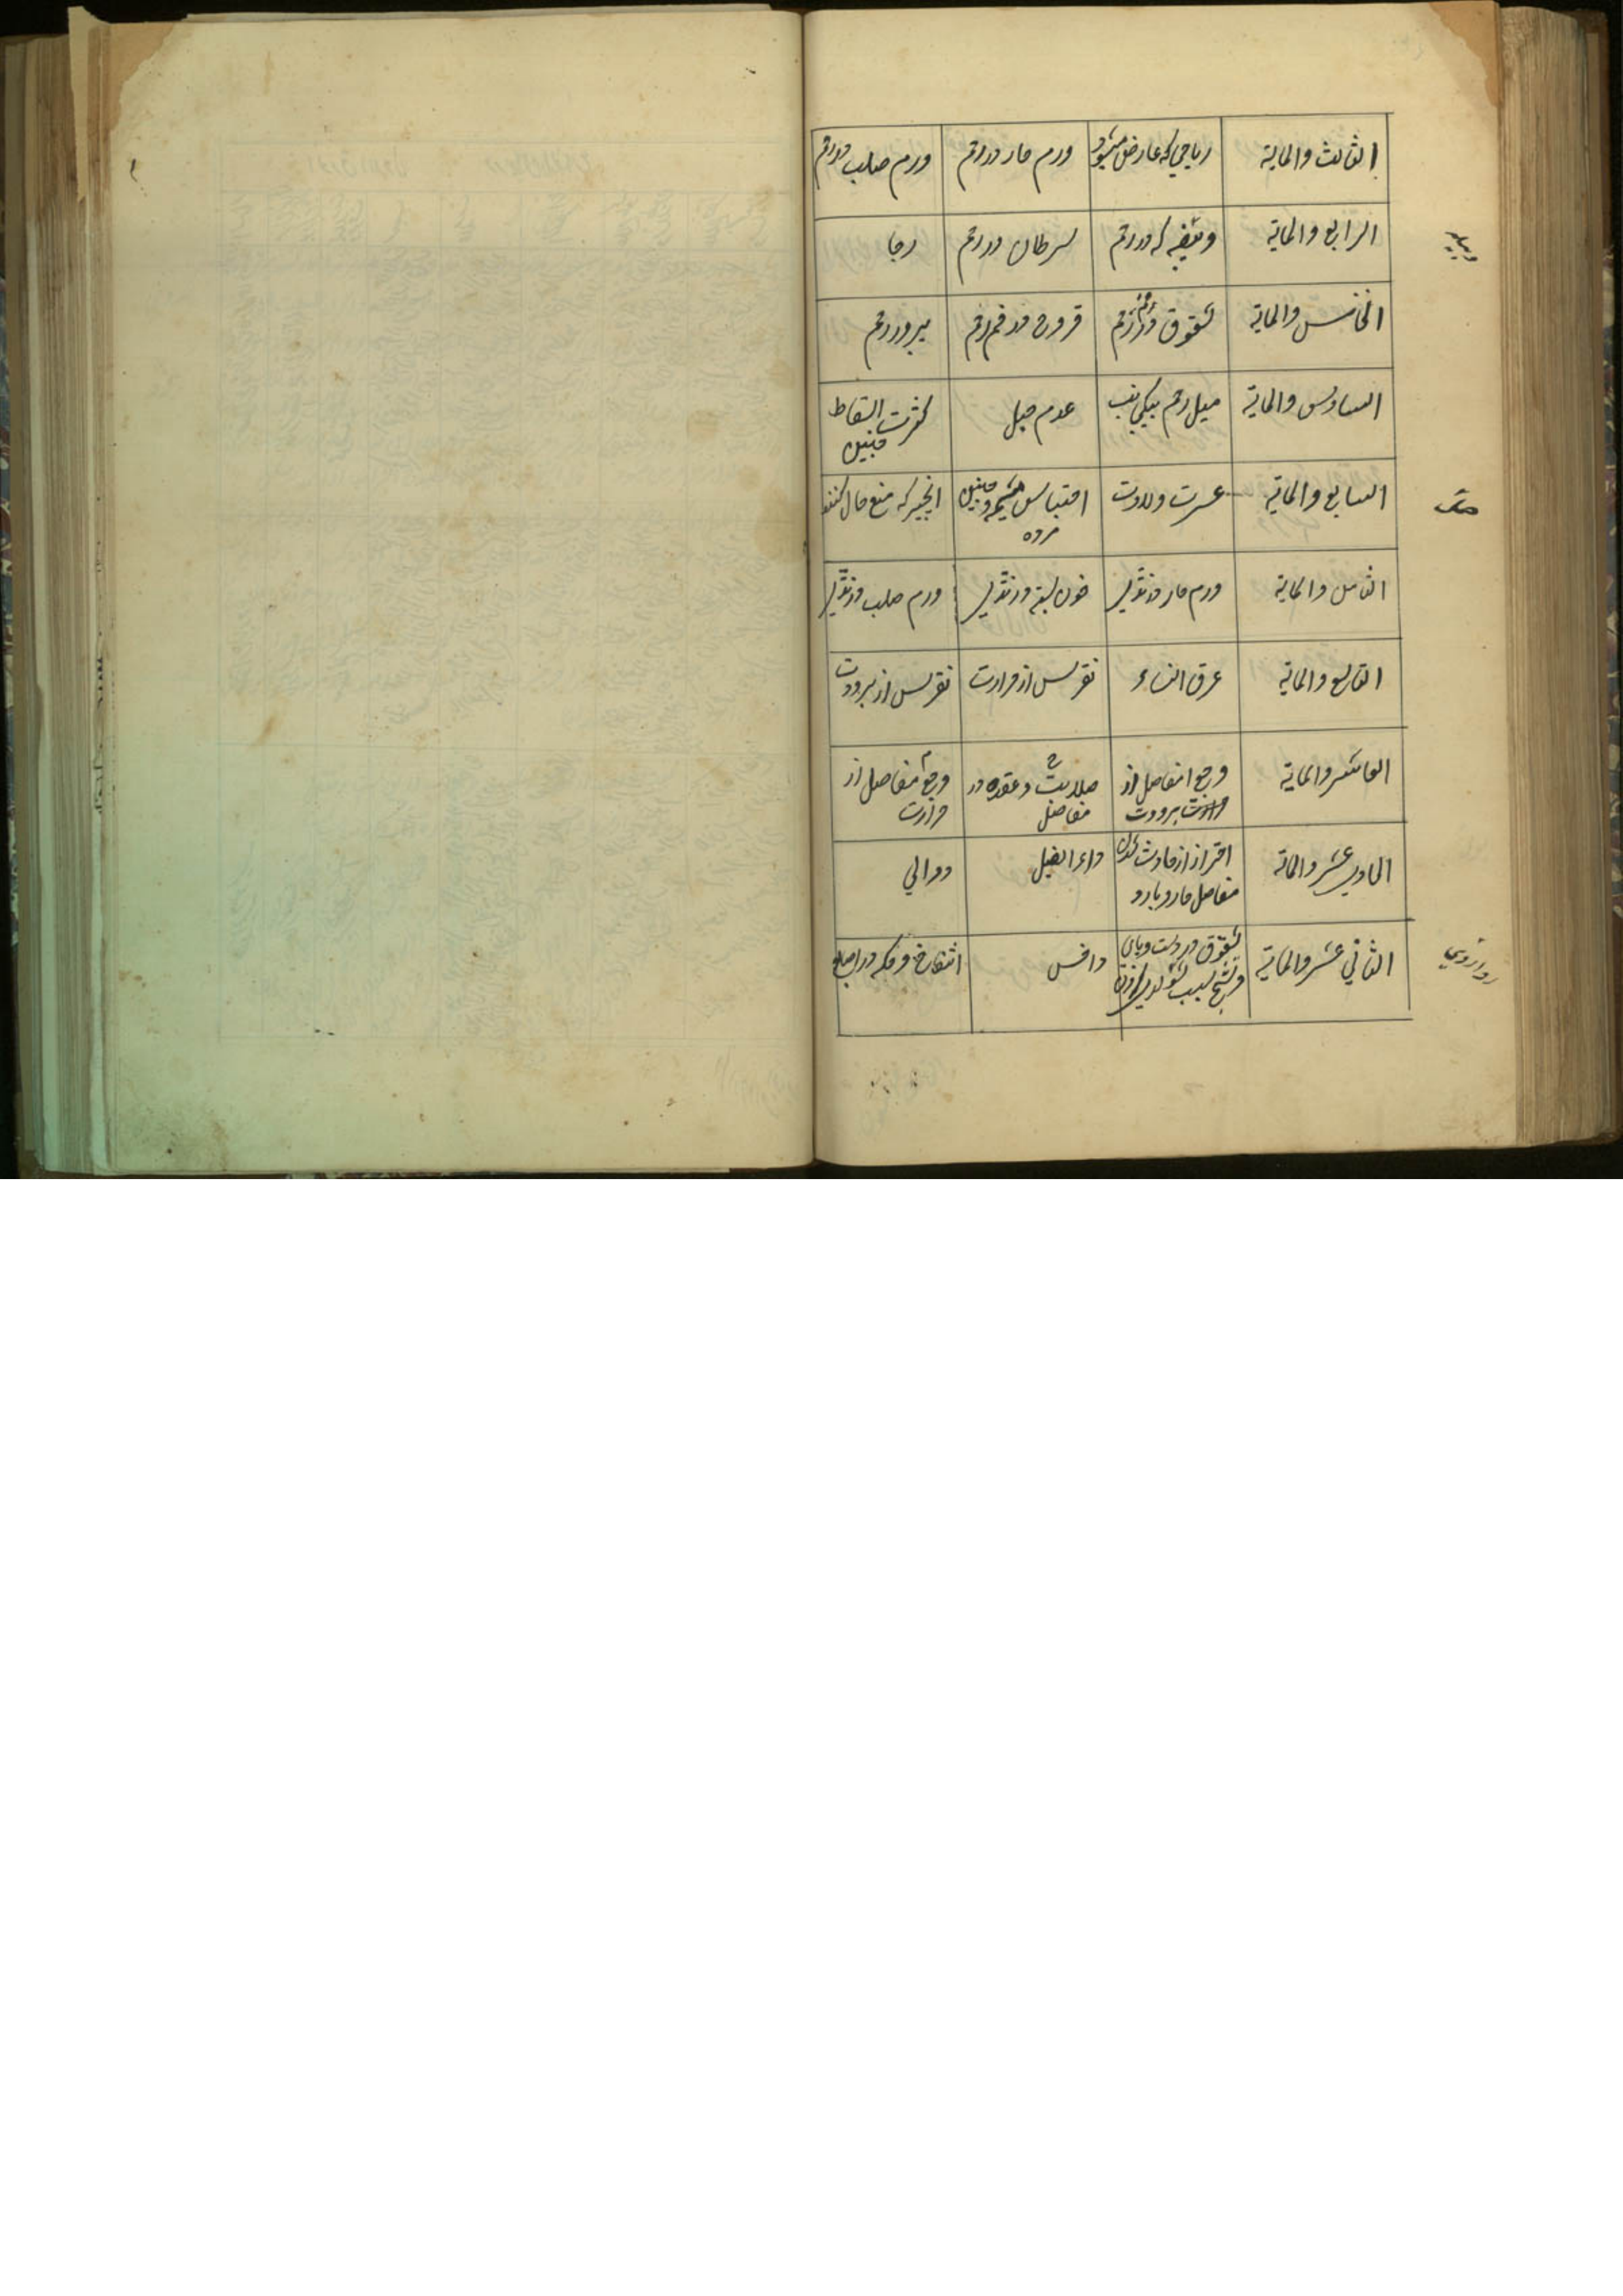 الثالث والمایة
ریاحی که عارض میشود
ورم حار در رحم
ورم صلب در رحم
الرابع والمایة
که در رحم
سرطان در رحم
رجا
الخامس والمایة
شقوق در رحم
قروح در فم رحم
در رحم
السادس والمایة
میل رحم بیکی
عدم حبل
کثرت اسقاط
جنین
السابع والمایة
عسرت ولادت
احتباس مشیمه و جنین
مرده
انچیز که منع حمل کند
الثامن والمایة
ورم حار در ثدی
خون بسته در ثدی
ورم صلب در ثدی
التاسع والمایة
عرق النساء
نقرس از حرارت
نقرس از برودت
العاشر والمایة
وجع مفاصل از
برودت
صلابت و عقده در
مفاصل
وجع مفاصل از
حرارت
الحادی عشر والمایة
احتراز از حادث شدن
مفاصل حار و بارد
داء الفیل
دوالی
الثانی عشر والمایة
شقوق در دست و پای
داخس
انتفاخ و حکه در اصابع